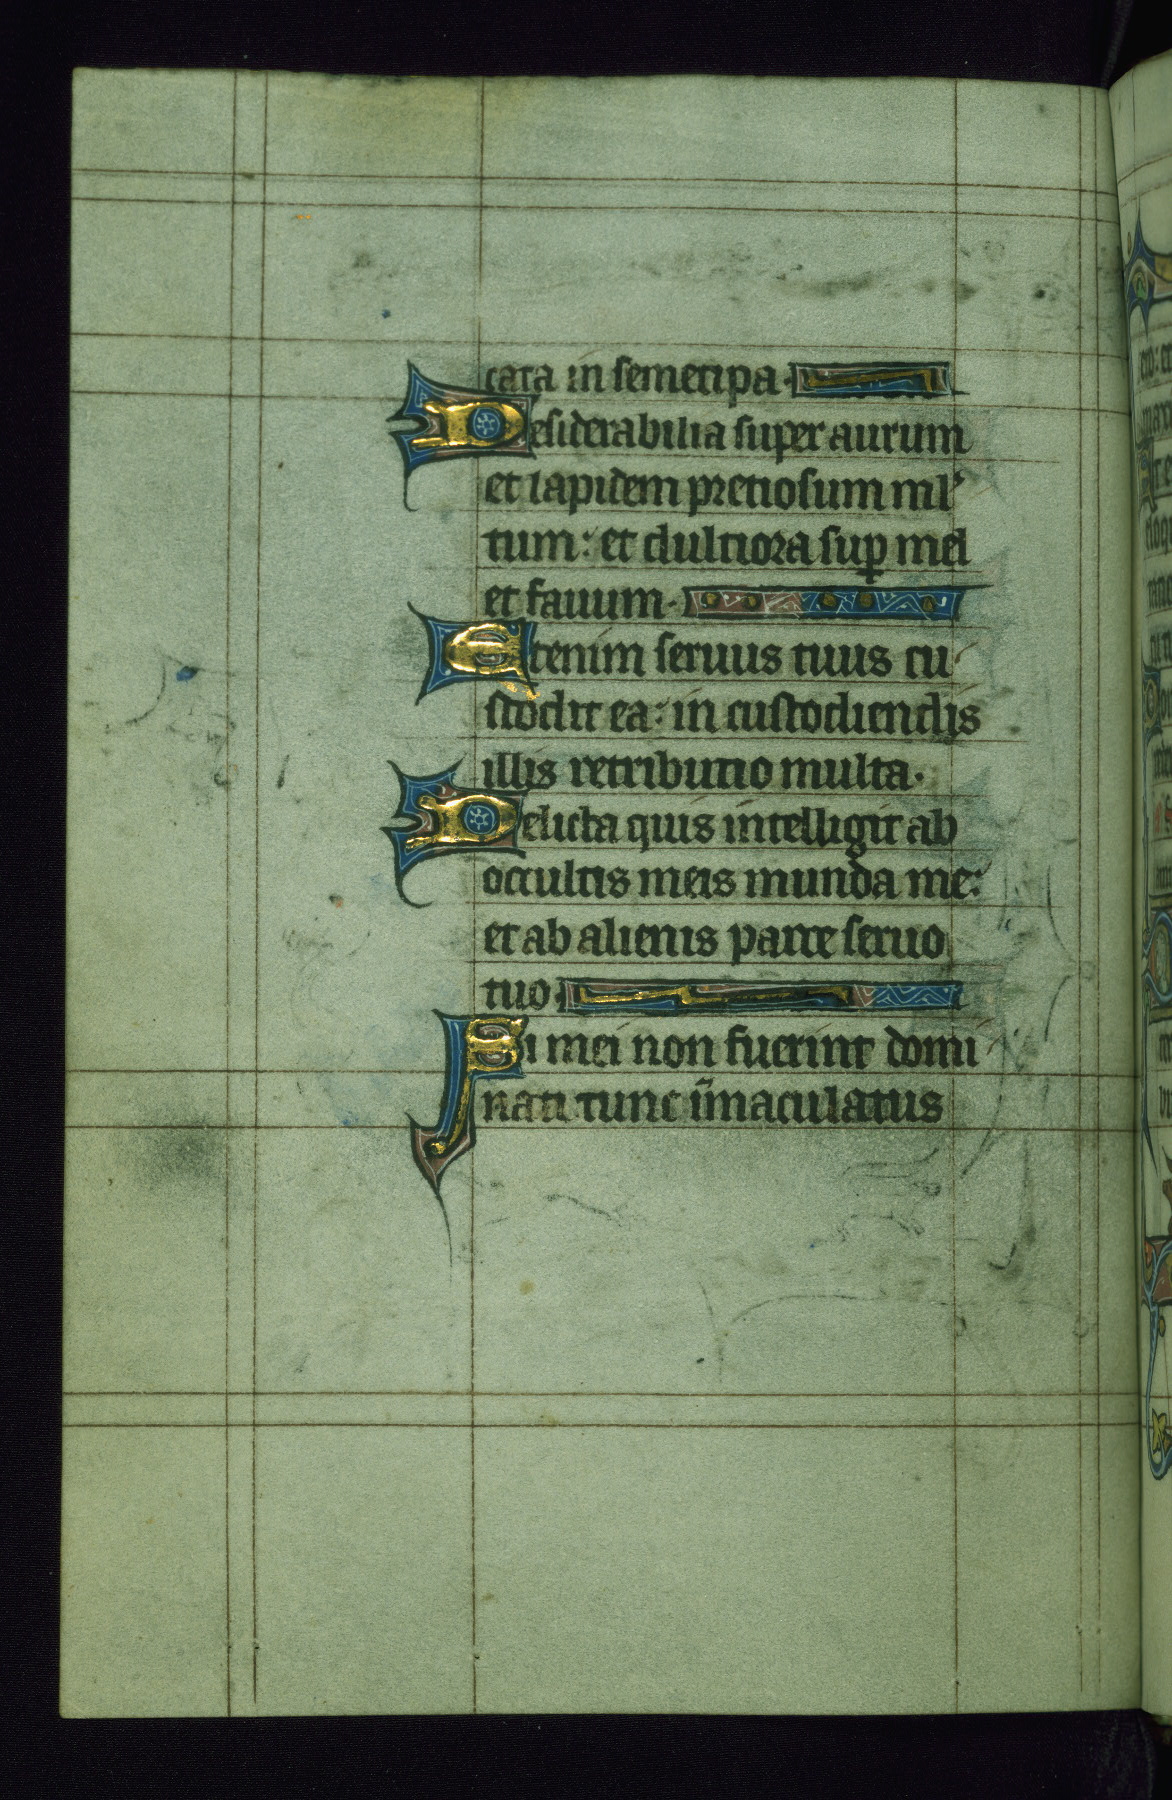 cata in semetipa.
Desiderabilia super aurum
et lapidem pretiosum ml'
tum: et dulciora sup mel
et fauum.
Etenim seruus tuus cu
stodit ea: in custodiendis
illis retributio multa.
Delicta quis intelligit ab
occultis meis munda me:
et ab alienis parce seruo
tuo.
Si mei non fuerint domi
nati tunc īmaculatus